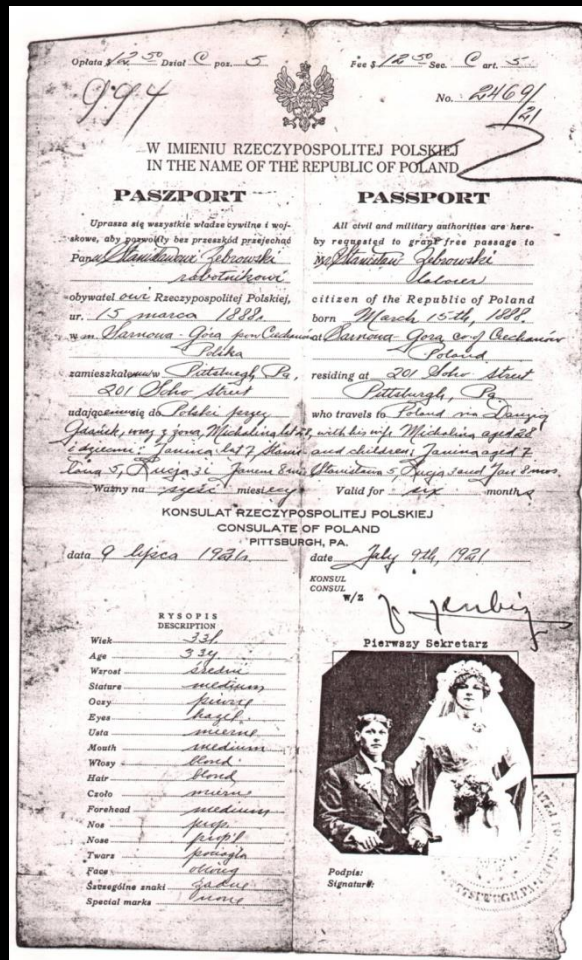 Opłata $ 12 50 Dział C poz. 5
Fee $ 12 50 Sec. C art. 5
994
No. 2469/21
W IMIENIU RZECZYPOSPOLITEJ POLSKIEJ
IN THE NAME OF THE REPUBLIC OF POLAND
PASZPORT
Uprasza się wszystkie władze cywilne i woj-
skowe, aby pozwoliły bez przeszkód przejechać
Panu Stanisławowi Żebrowski
robotnikowi
obywatelowi Rzeczypospolitej Polskiej,
ur. 15 marca 1888r.
w m. Sarnowa-Góra pow. Ciechanów
Polska
zamieszkałemu w Pittsburgh, Pa.
201 Soho street
udającemu się do Polski przez
Gdańsk, wraz z żoną, Michaliną lat 28,
i dziećmi: Janiną lat 7, Stanis-
ławą 5, Łucją 3 i Janem 8 mies.
Ważny na sześć miesięcy
PASSPORT
All civil and military authorities are here-
by requested to grant free passage to
Mr. Stanisław Żebrowski
laborer
citizen of the Republic of Poland
born March 15-th, 1888.
at Sarnowa-Gora, co of Ciechanów
Poland
residing at 201 Soho street
Pittsburgh, Pa.
who travels to Poland via Danzig
with his wife Michalina aged 28
and children; Janina aged 7
Stanisława 5, Łucja 3 and Jan 8 mos.
Valid for six months
KONSULAT RZECZYPOSPOLITEJ POLSKIEJ
CONSULATE OF POLAND
PITTSBURGH, PA.
data 9 lipca 1921r.
date July 9th, 1921
KONSUL
CONSUL
w/z
Pierwszy Sekretarz
RYSOPIS
DESCRIPTION
Wiek 33 l
Age 33 y
Wzrost średni
Stature medium
Oczy piwne
Eyes hazel
Usta mierne
Mouth medium
Włosy blond
Hair blond
Czoło mierne
Forehead medium
Nos prop.
Nose prop'l
Twarz pociągła
Face oblong
Szczególne znaki żadne
Special marks none
Podpis:
Signature: